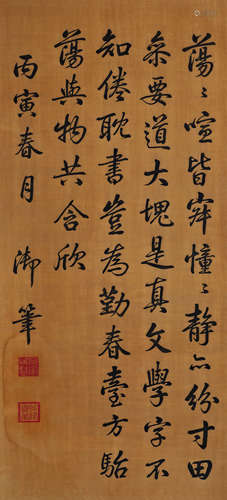 蕩〻喧皆寂憧〻靜亦紛寸田
秉要道大塊是真文學字不
知倦耽書豈為勤春臺方駘
蕩與物共含欣
丙寅春月 御筆